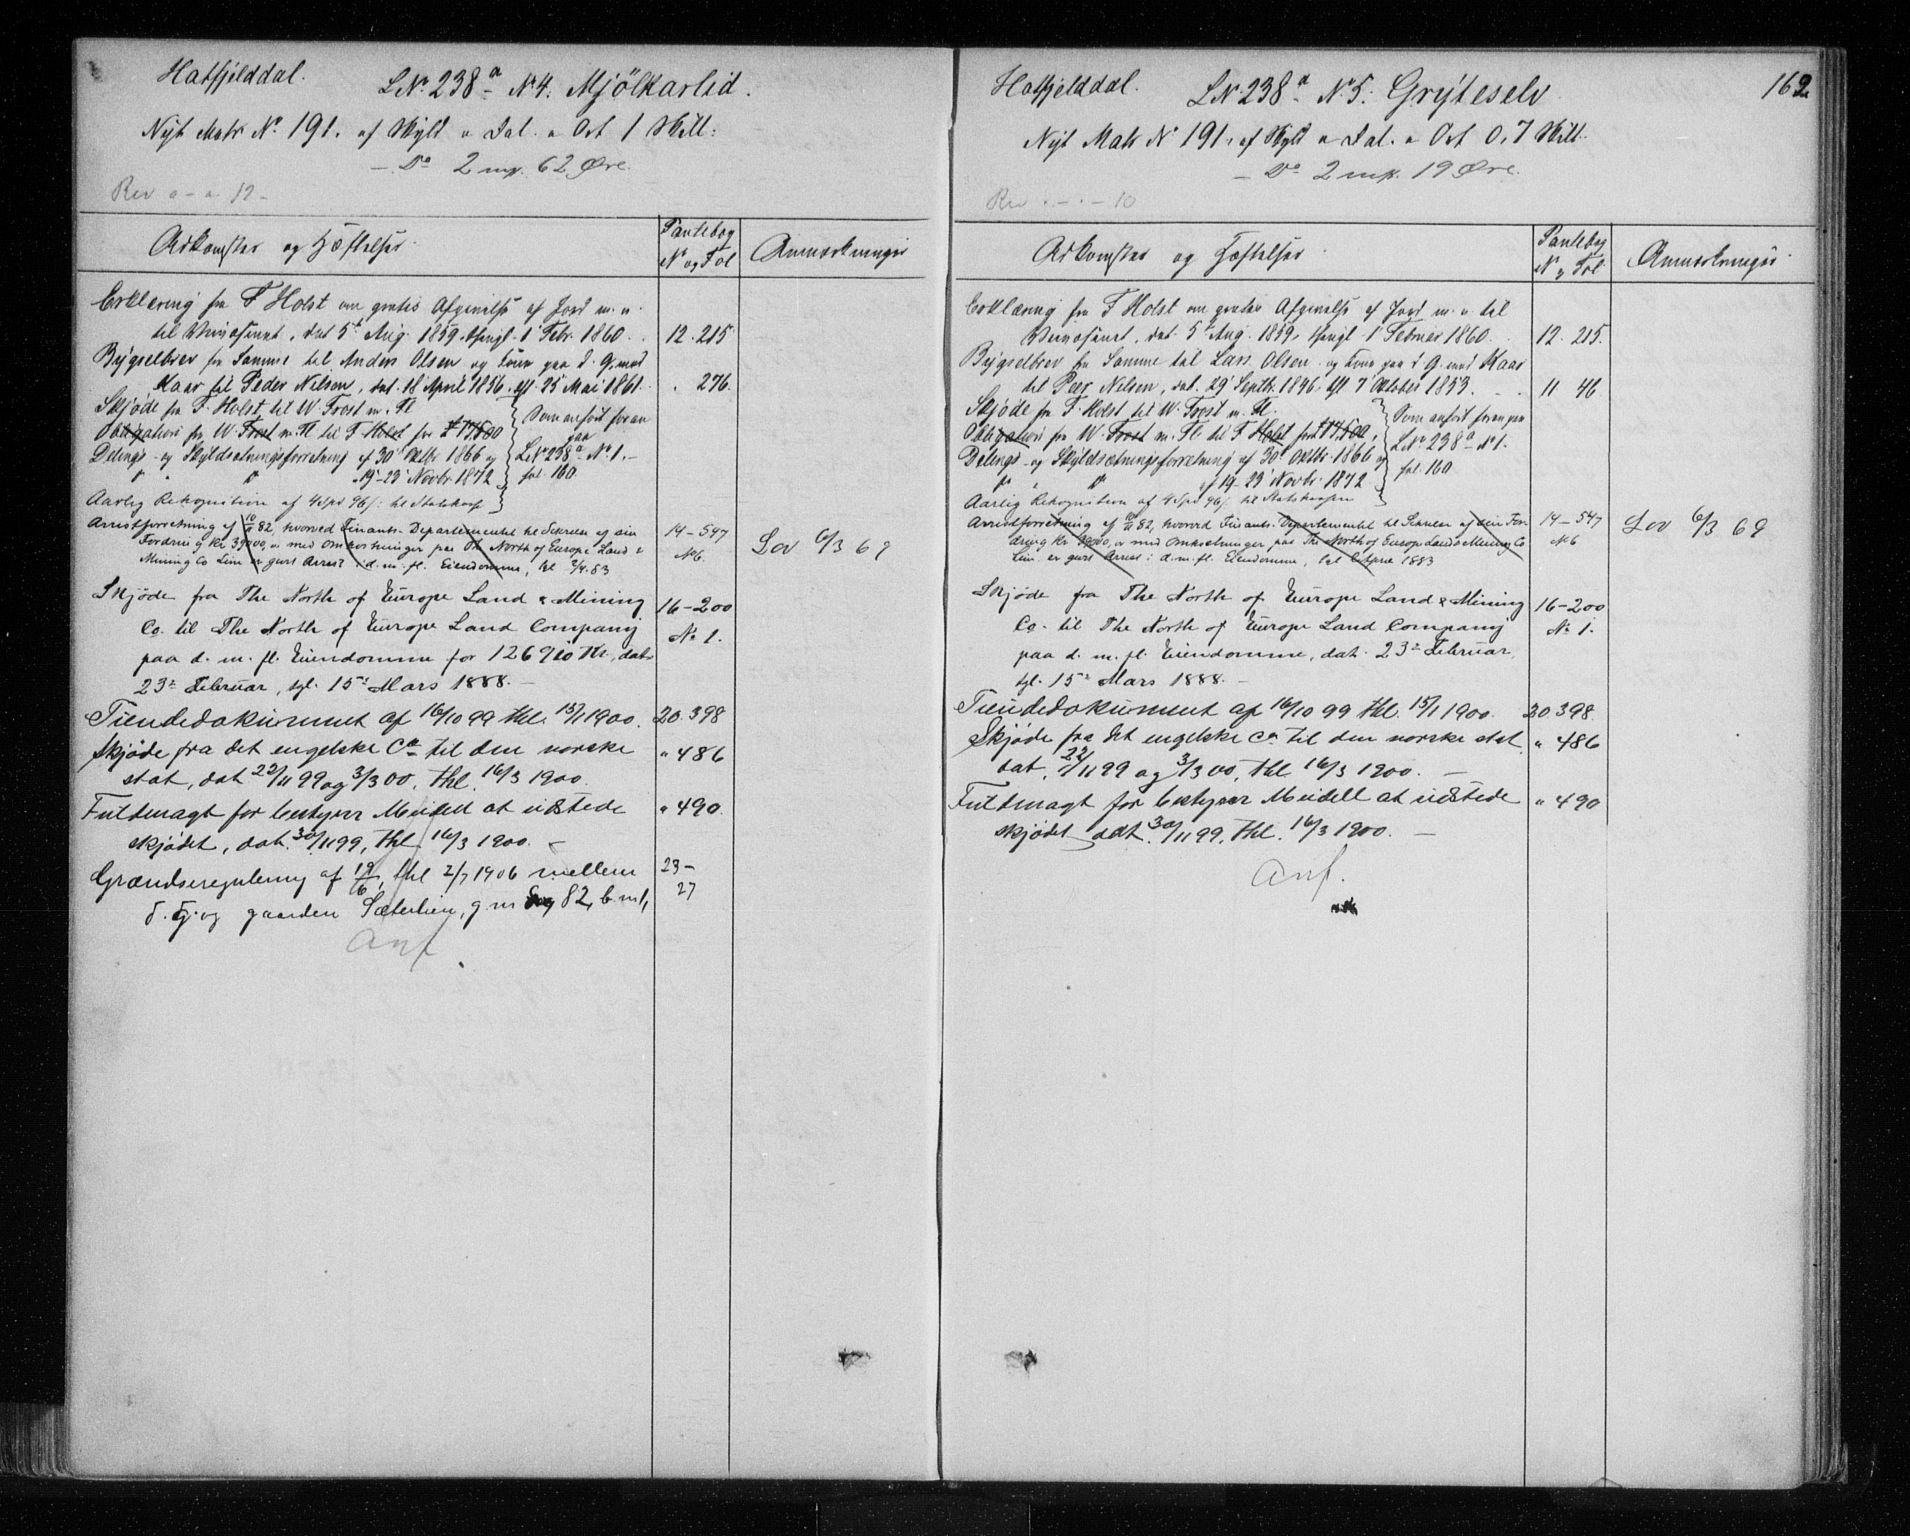 Hatfjelddal. LNo 238a No 4. Mjölkarlid.
Nyt Matr No 191. af Skyld " Dal. " Ort 1 Skill:
- Do 2 mk. 62 Øre.
Rev 0 - 0. 12 -
Adkomster og Hæftelser.
Pantebog
No og Fol
Anmærkninger
Erklæring fra F Holst om gratis Afgivelse af Jord m. v.
til Veivæsenet, dat 5t Aug. 1859, thingl. 1 Febr. 1860. 12. 215
Bygselbrev fra Samme til Anders Olsen og Kone paa d. G. mod
Kaar til Peder Nilsen, dat. 18 April 1856, tgl. 25 Mai 1861. . 276.
Skjøde fra F. Holst til W. Frost m. Fl
Som anført foran
Obligation fra W. Frost m. Fl til F Holst for £ 17500
paa
Delings- og Skyldsætningsforretning af 30 Oktbr 1866 og
LNo 238a No 1. -
" " " 19-23 Novbr 1872
fol. 160.
Aarlig Rekognition af 4 Spd 96 s. til Statskassen
Arrestforretning af 10/11 82, hvorved Finants-Departementet til Sikrelse af sin
14-547
Fordring Kr 39000, " med Omkostninger paa The North of Europe Land &
No 6.
Lov 6/3 69
Mining Co Lim er gjort Arrest i d. m. fl. Eiendomme, tgl 2/4.83
Skjøde fra The North of Europe Land & Mining 16-200
Co. til The North of Europe Land Company No 1.
paa d. m. fl. Eiendomme for 126910 Kr, dat.
23de Februar, tgl. 15de Mars 1888. -
Tiendedokument af 16/10 99 thl. 15/1 1900. 20. 398
Skjøde fra det engelske Co til den norske
" 486
stat, dat 22/11 99 og 3/3 00, thl. 16/3 1900.
Fuldmagt for bestyrer Meidell at udstede " 490.
skjødet, dat. 30/11 99, thl 16/3 1900. -
Grændseregulering af 19/6, thl 2/7 1906 mellem 23-
d. G. og gaarden Sæterlien, g. n 82, b. n 1, 27
Anf.
Hatfjelddal. LNo 238a No 5. Grÿteselv 162
Nyt Matr No 191. af Skyld " Dal. " Ort 0,7 Skill.
- Do 2 mk. 19 Øre.
Rev . - . - 10
Adkomster og Hæftelser.
Pantebog
No og Fol
Anmærkninger
Erklæring fra F Holst om gratis Afgivelse af Jord m. v til
Veivæsenet, dat. 5t Aug. 1859, thingl 1 Februar 1860. 12. 215.
Bygselbrev fra Samme til Lars Olsen og Kone paa d G. mod Kaar
til Peer Nilsen, dat. 29 Septbr. 1846, tgl 7 Oktober 1853. 11 46
Skjøde fra F. Holst til W. Frost m. Fl.
Som anført foran paa
Obligation fra W. Frost m. Fl til F Holst for £ 17500,
LNo 238a No 1.
Delings- og Skyldsætningsforretning af 30 Oktbr. 1866 og
fol. 160
" " af 19-23 Novbr 1872
Aarlig Rekognition af 4 Spd 96 s. til Statskassen
Arrestforretning af 10/11 82, hvorved Finants-Departementet til Sikrelse af sin For-
14-547
dring Kr 39000, " med Omkostninger paa The North of Europe Land & Mining Co
No 6
Lov 6/3 69
Lim. er gjort Arrest i d. m. fl. Eiendomme, tgl 2 April 1883
Skjøde fra The North of Europe Land & Mining 16-200
Co. til The North of Europe Land Company No 1.
paa d. m. fl. Eiendomme, dat. 23de Februar,
tgl. 15de Mars 1888. -
Tiendedokument af 16/10 99 thl. 15/1 1900. 20 398.
Skjøde fra det engelske Co til den norske stat " 486
dat. 22/11 99 og 3/3 00, thl 16/3 1900. -
Fuldmagt for bestyrer Meidell at udstede " 490
skjødet dat. 30/11 99, thl. 16/3 1900. -
Anf.